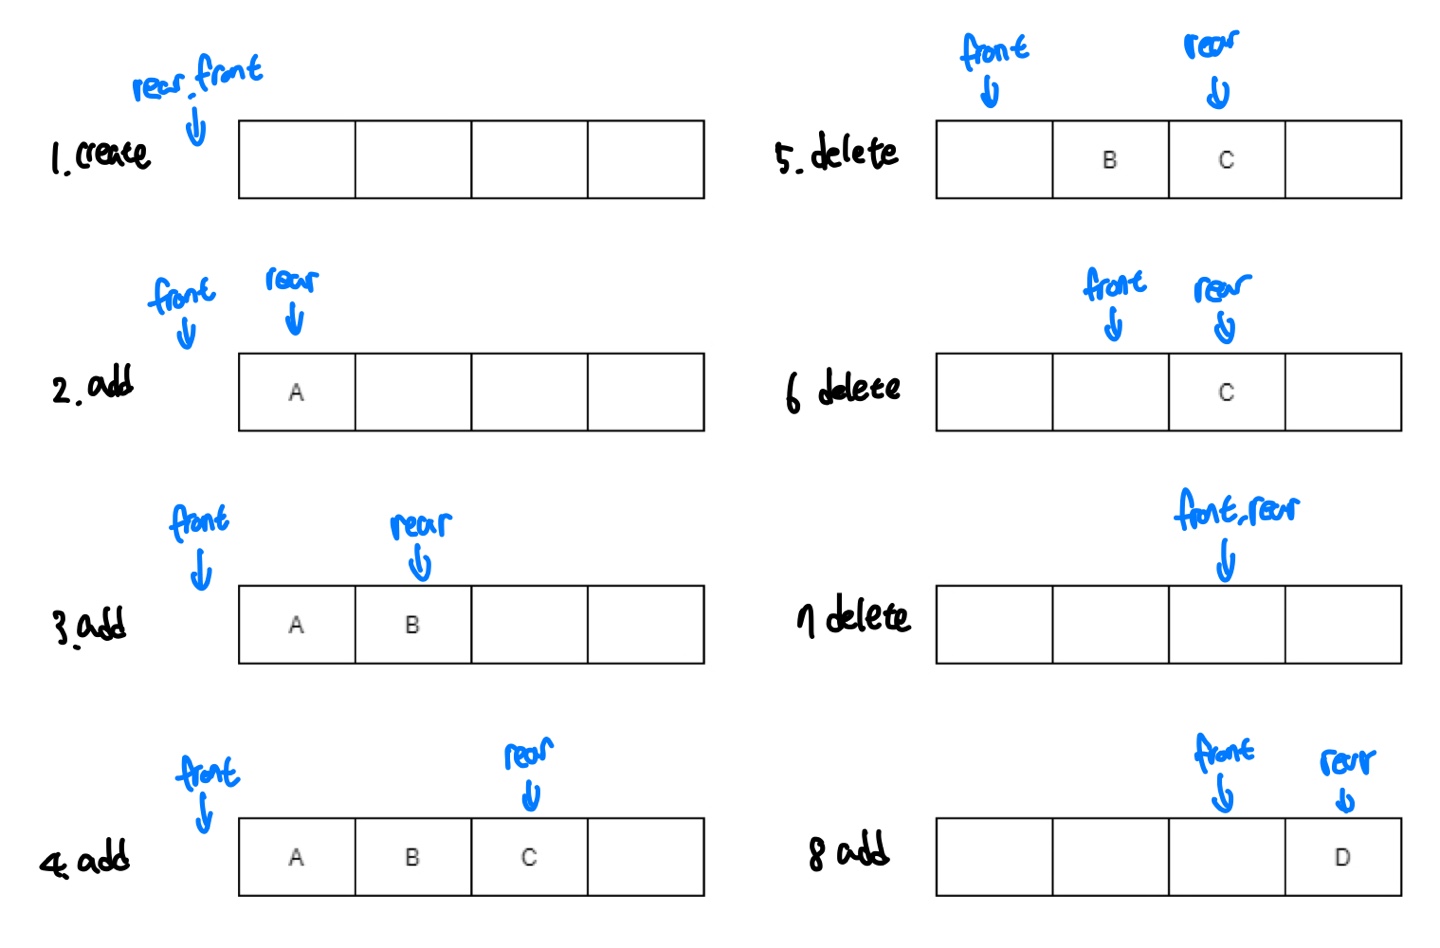 rear, front
1. create
front rear
2. add
A
front rear
3. add
A B
front rear
4. add
A B C
front rear
5. delete
B C
front rear
6 delete
C
front, rear
7 delete
front rear
8 add
D